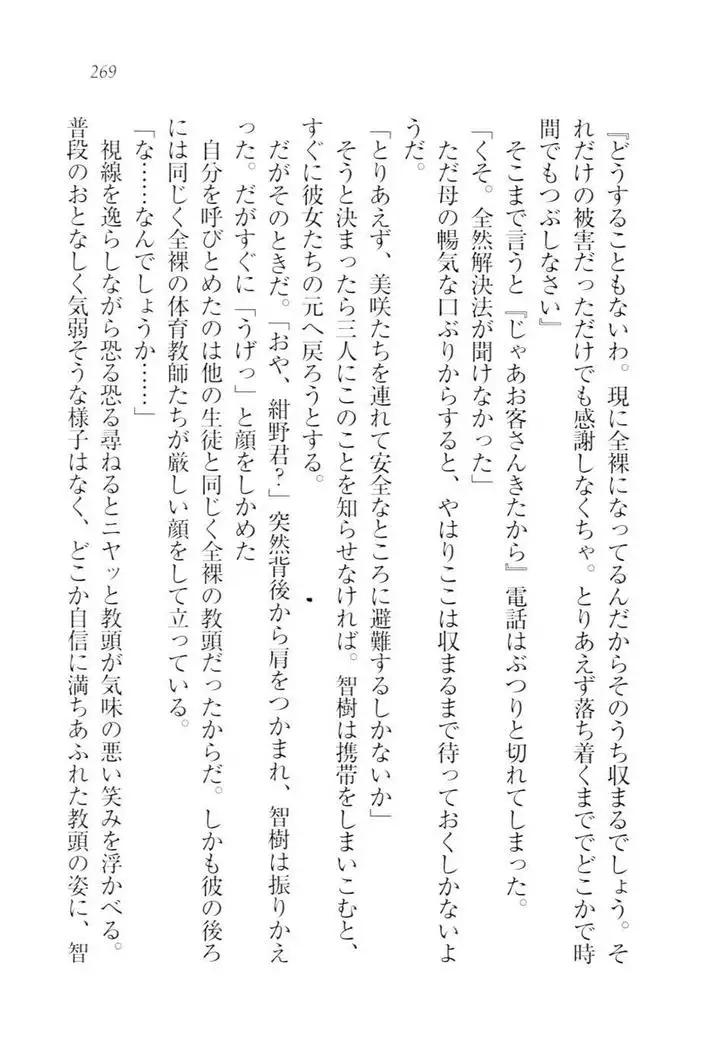 269
『どうすることもないわ。現に全裸になってるんだからそのうち収まるでしょう。そ
れだけの被害だっただけでも感謝しなくちゃ。とりあえず落ち着くまででどこかで時
間でもつぶしなさい』
そこまで言うと『じゃあお客さんきたから』電話はぶつりと切れてしまった。
「くそ。全然解決法が聞けなかった」
ただ母の暢気な口ぶりからすると、やはりここは収まるまで待っておくしかないよ
うだ。
「とりあえず、美咲たちを連れて安全なところに避難するしかないか」
そうと決まったら三人にこのことを知らせなければ。智樹は携帯をしまいこむと、
すぐに彼女たちの元へ戻ろうとする。
だがそのときだ。「おや、紺野君?」突然背後から肩をつかまれ、智樹は振りかえ
った。だがすぐに「うげっ」と顔をしかめた
自分を呼びとめたのは他の生徒と同じく全裸の教頭だったからだ。しかも彼の後ろ
には同じく全裸の体育教師たちが厳しい顔をして立っている。
「な……なんでしょうか……」
視線を逸らしながら恐る恐る尋ねるとニヤッと教頭が気味の悪い笑みを浮かべる。
普段のおとなしく気弱そうな様子はなく、どこか自信に満ちあふれた教頭の姿に、智